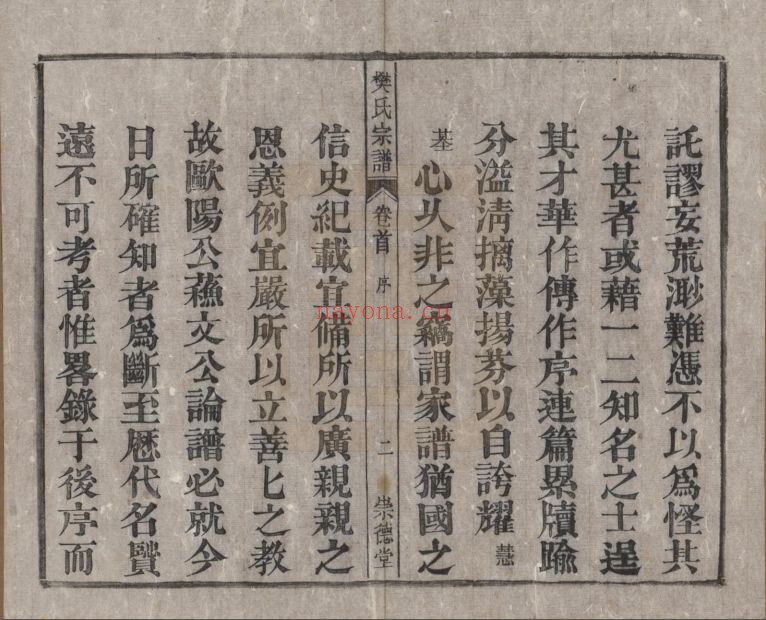 託謬妄荒渺難憑不以爲怪其
尤甚者或藉一二知名之士逞
其才華作傳作序連篇累牘踰
分溢淸摛藻揚芬以自誇耀
基心乆非之竊謂家譜猶國之
樊氏宗譜 卷首 序 二 崇德堂
信史紀載宜俻所以廣親親之
恩義例宜嚴所以立善匕之教
故歐陽公蘓文公論譜必就今
日所確知者爲斷至歴代名賢
遠不可考者惟畧錄于後序而
nayona.cn